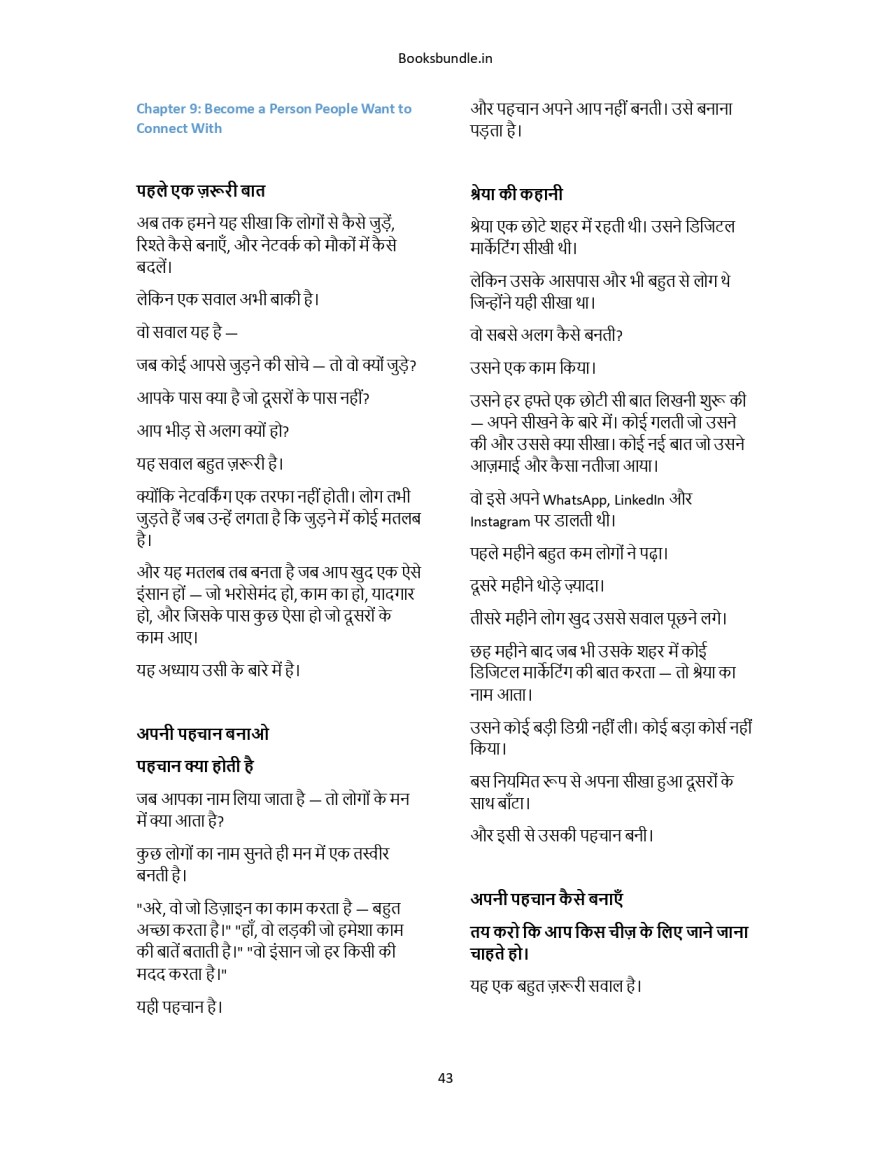 Booksbundle.in
Chapter 9: Become a Person People Want to
Connect With
पहले एक ज़रूरी बात
अब तक हमने यह सीखा कि लोगों से कैसे जुड़ें,
रिश्ते कैसे बनाएँ, और नेटवर्क को मौकों में कैसे
बदलें।
लेकिन एक सवाल अभी बाकी है।
वो सवाल यह है —
जब कोई आपसे जुड़ने की सोचे — तो वो क्यों जुड़े?
आपके पास क्या है जो दूसरों के पास नहीं?
आप भीड़ से अलग क्यों हो?
यह सवाल बहुत ज़रूरी है।
क्योंकि नेटवर्किंग एक तरफा नहीं होती। लोग तभी
जुड़ते हैं जब उन्हें लगता है कि जुड़ने में कोई मतलब
है।
और यह मतलब तब बनता है जब आप खुद एक ऐसे
इंसान हों — जो भरोसेमंद हो, काम का हो, यादगार
हो, और जिसके पास कुछ ऐसा हो जो दूसरों के
काम आए।
यह अध्याय उसी के बारे में है।
अपनी पहचान बनाओ
पहचान क्या होती है
जब आपका नाम लिया जाता है — तो लोगों के मन
में क्या आता है?
कुछ लोगों का नाम सुनते ही मन में एक तस्वीर
बनती है।
"अरे, वो जो डिज़ाइन का काम करता है — बहुत
अच्छा करता है।" "हाँ, वो लड़की जो हमेशा काम
की बातें बताती है।" "वो इंसान जो हर किसी की
मदद करता है।"
यही पहचान है।
और पहचान अपने आप नहीं बनती। उसे बनाना
पड़ता है।
श्रेया की कहानी
श्रेया एक छोटे शहर में रहती थी। उसने डिजिटल
मार्केटिंग सीखी थी।
लेकिन उसके आसपास और भी बहुत से लोग थे
जिन्होंने यही सीखा था।
वो सबसे अलग कैसे बनती?
उसने एक काम किया।
उसने हर हफ्ते एक छोटी सी बात लिखनी शुरू की
— अपने सीखने के बारे में। कोई गलती जो उसने
की और उससे क्या सीखा। कोई नई बात जो उसने
आज़माई और कैसा नतीजा आया।
वो इसे अपने WhatsApp, LinkedIn और
Instagram पर डालती थी।
पहले महीने बहुत कम लोगों ने पढ़ा।
दूसरे महीने थोड़े ज़्यादा।
तीसरे महीने लोग खुद उससे सवाल पूछने लगे।
छह महीने बाद जब भी उसके शहर में कोई
डिजिटल मार्केटिंग की बात करता — तो श्रेया का
नाम आता।
उसने कोई बड़ी डिग्री नहीं ली। कोई बड़ा कोर्स नहीं
किया।
बस नियमित रूप से अपना सीखा हुआ दूसरों के
साथ बाँटा।
और इसी से उसकी पहचान बनी।
अपनी पहचान कैसे बनाएँ
तय करो कि आप किस चीज़ के लिए जाने जाना
चाहते हो।
यह एक बहुत ज़रूरी सवाल है।
43